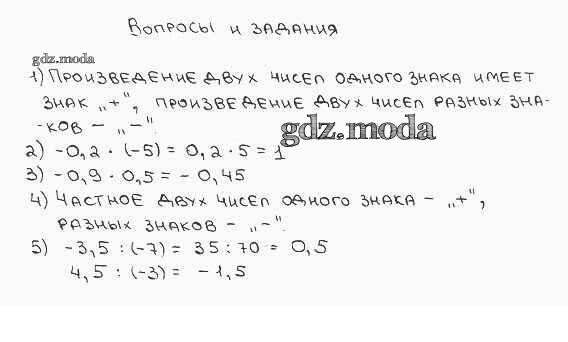 Вопросы и задания
gdz.moda
1) Произведение двух чисел одного знака имеет
знак „+“, произведение двух чисел разных зна-
-ков – „–“.
gdz.moda
2) -0,2 · (-5) = 0,2 · 5 = 1
3) -0,9 · 0,5 = - 0,45
4) Частное двух чисел одного знака – „+“,
разных знаков – „–“.
5) -3,5 : (-7) = 35 : 70 = 0,5
4,5 : (-3) = -1,5